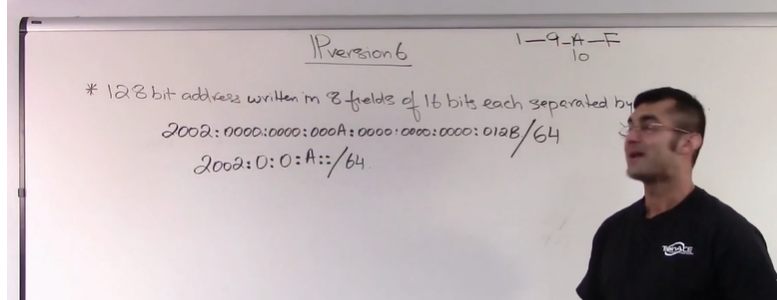 IP version 6
1—9—A—F
10
* 128 bit address written in 8 fields of 16 bits each separated by
2002:0000:0000:000A:0000:0000:0000:012B/64
2002:0:0:A::/64